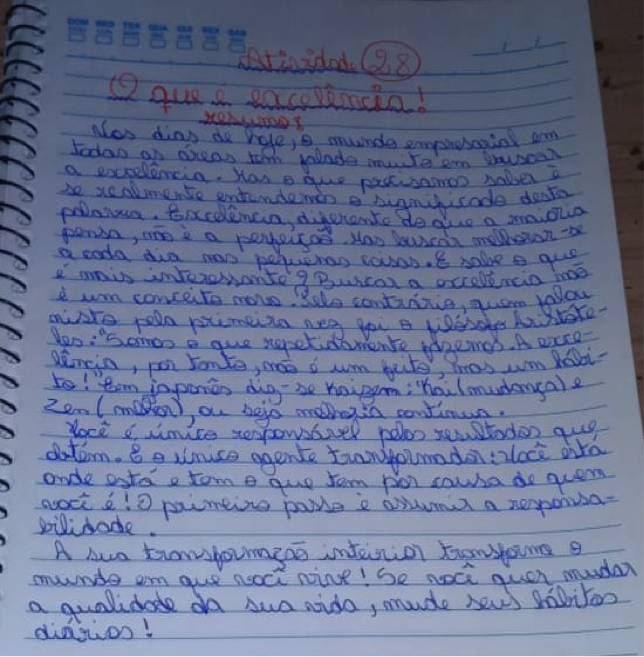 DOM SEG TER QUA QUI SEX SAB
Atividade 28
O que é excelência!
resumo:
Nos dias de hoje, o mundo empresarial em
todas as áreas tem falado muito em buscar
a excelência. Mas o que precisamos saber é
se realmente entendemos o significado desta
palavra. Excelência, diferente do que a maioria
pensa, não é a perfeição. Mas buscar melhorar-se
a cada dia nas pequenas coisas. E sabe o que
é mais interessante? Buscar a excelência não
é um conceito novo. Pelo contrário, quem falou
nisto pela primeira vez foi o filósofo Aristóte-
les: "Somos o que repetidamente fazemos. A exce-
lência, por tanto, não é um feito, mas um hábi-
to!" Em japonês diz-se Kaizem: "Kai (mudança) e
Zen (melhor), ou seja melhoria contínua.
Você é único responsável pelos resultados que
obtém. E o único agente transformador: Você está
onde está e tem o que tem por causa de quem
você é! O primeiro passo é assumir a responsa-
bilidade.
A sua transformação inteirior transforma o
mundo em que você vive! Se você quer mudar
a qualidade da sua vida, mude seus hábitos
diários!